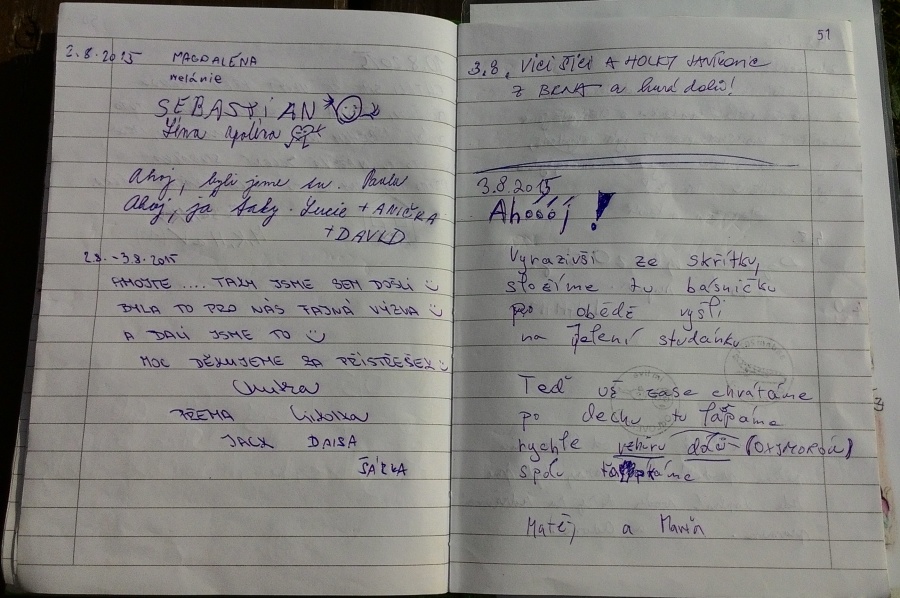 2.8.2015 MAGDALÉNA
melánie
SEBASTIÁN
Ahoj, byli jsme tu. Pavla
Ahoj, já taky. Lucie + ANIČKA
+ DAVID
2.8.-3.8.2015
AHOJTE .... TAKY JSME SEM DOŠLI
BYLA TO PRO NÁS TAJNÁ VÝZVA
A DALI JSME TO
MOC DĚKUJEME ZA PŘÍSTŘEŠEK
PŘEMA
JACK DAISA
ŠÁRKA
51
3.8. A HOLKY
Z BRNA a hurá dolů!
3.8.2015
Ahoooj!
Vyrazivši ze skřítky,
složíme tu básničku
po obědě vyšli
na Zelení studánku
Teď už zase chvátáme
po dechu tu lapáme
rychle vzhůru dolů (OXYMORON)
spolu
Matěj a